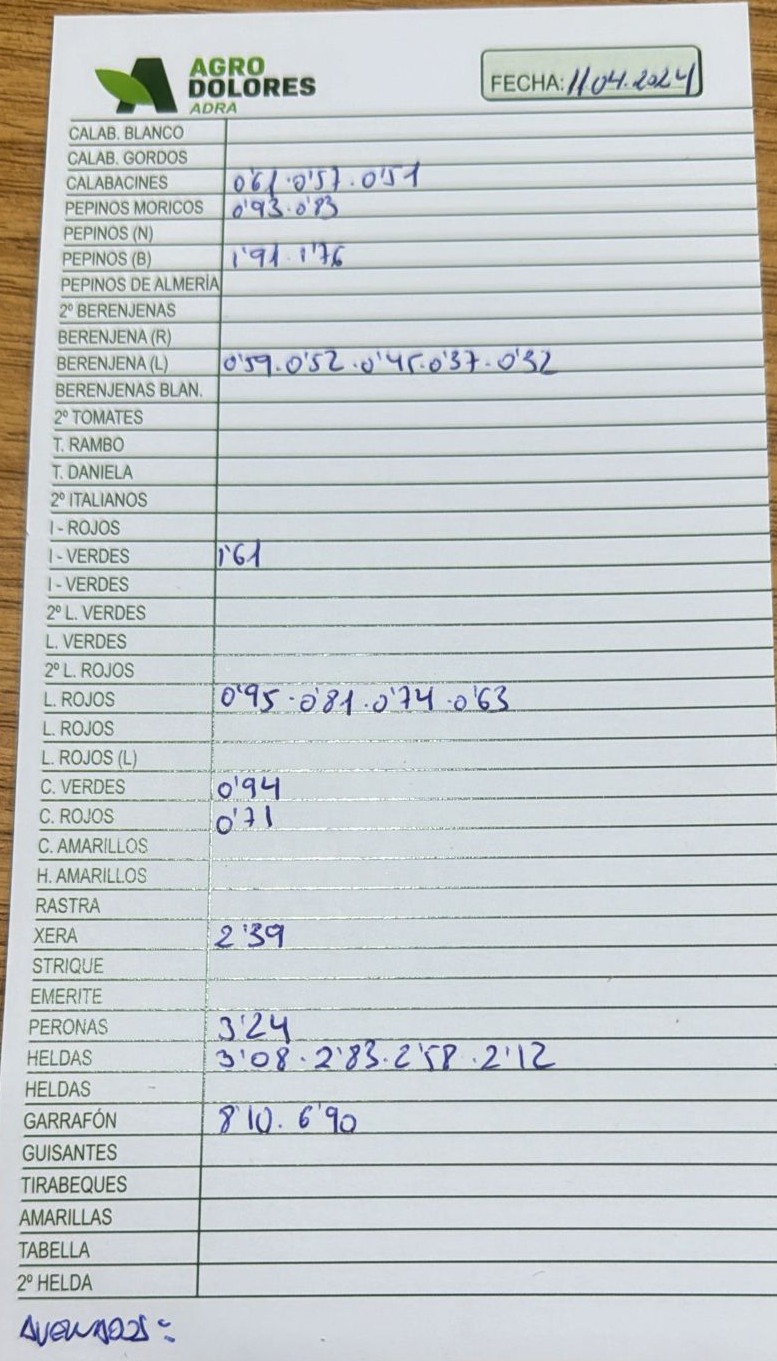 AGRO
DOLORES
ADRA
FECHA: 11 04.2024
CALAB. BLANCO
CALAB. GORDOS
CALABACINES 0'61·0'57·0'51
PEPINOS MORICOS 0'93·0'83
PEPINOS (N)
PEPINOS (B) 1'91·1'76
PEPINOS DE ALMERÍA
2º BERENJENAS
BERENJENA (R)
BERENJENA (L) 0'59·0'52·0'45·0'37·0'32
BERENJENAS BLAN.
2º TOMATES
T. RAMBO
T. DANIELA
2º ITALIANOS
I - ROJOS
I - VERDES 1'61
I - VERDES
2º L. VERDES
L. VERDES
2º L. ROJOS
L. ROJOS 0'95·0'81·0'74·0'63
L. ROJOS
L. ROJOS (L)
C. VERDES 0'94
C. ROJOS 0'71
C. AMARILLOS
H. AMARILLOS
RASTRA
XERA 2'39
STRIQUE
EMERITE
PERONAS 3'24
HELDAS 3'08·2'83·2'58·2'12
HELDAS
GARRAFÓN 8'10·6'90
GUISANTES
TIRABEQUES
AMARILLAS
TABELLA
2º HELDA